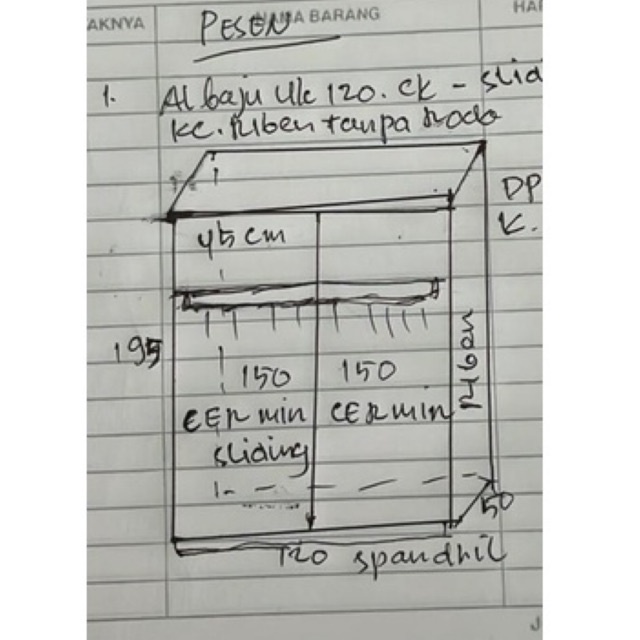 AKNYA NAMA BARANG HA
PESEN
1. Al baju Uk 120. CK - Slid
kc. Riben tanpa Roda
DP
K.
45 cm
195
150 150
Riben
CERmin CERmin
sliding
50
120 spandril
J